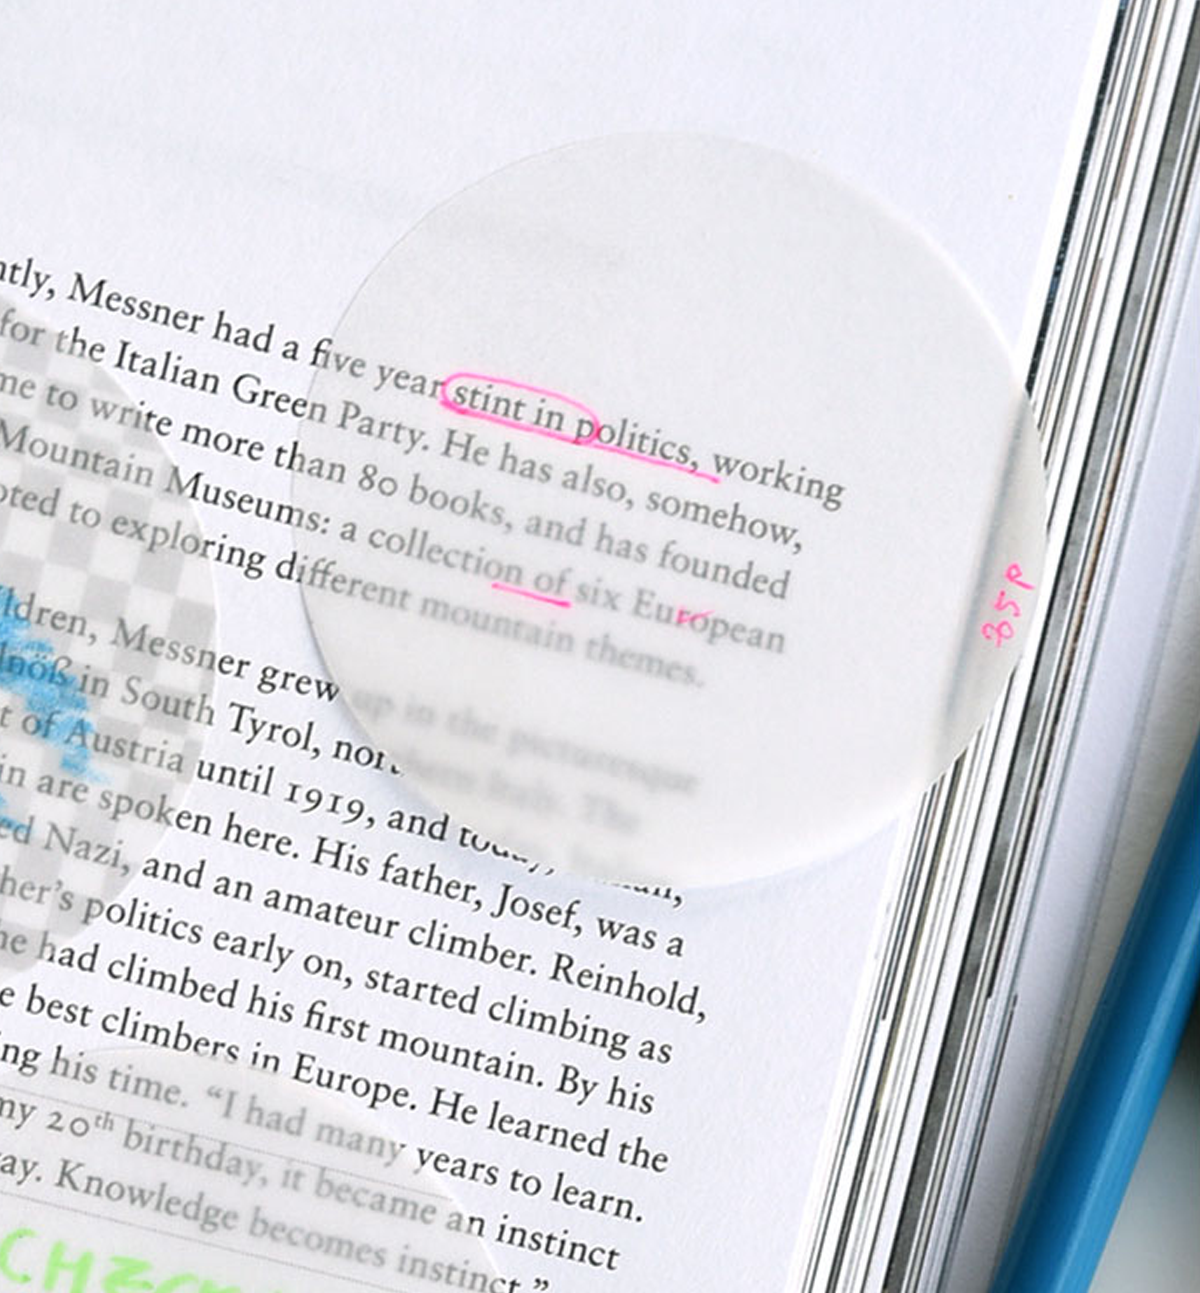 ntly, Messner had a five year stint in politics, working
for the Italian Green Party. He has also, somehow,
me to write more than 80 books, and has founded
Mountain Museums: a collection of six European
oted to exploring different mountain themes.
ldren, Messner grew up in the picturesque
lnöß in South Tyrol, northern Italy. The
t of Austria until 1919, and today,
in are spoken here. His father, Josef, was a
ed Nazi, and an amateur climber. Reinhold,
her’s politics early on, started climbing as
he had climbed his first mountain. By his
e best climbers in Europe. He learned the
ing his time. “I had many years to learn.
my 20th birthday, it became an instinct
ay. Knowledge becomes instinct.”
35P